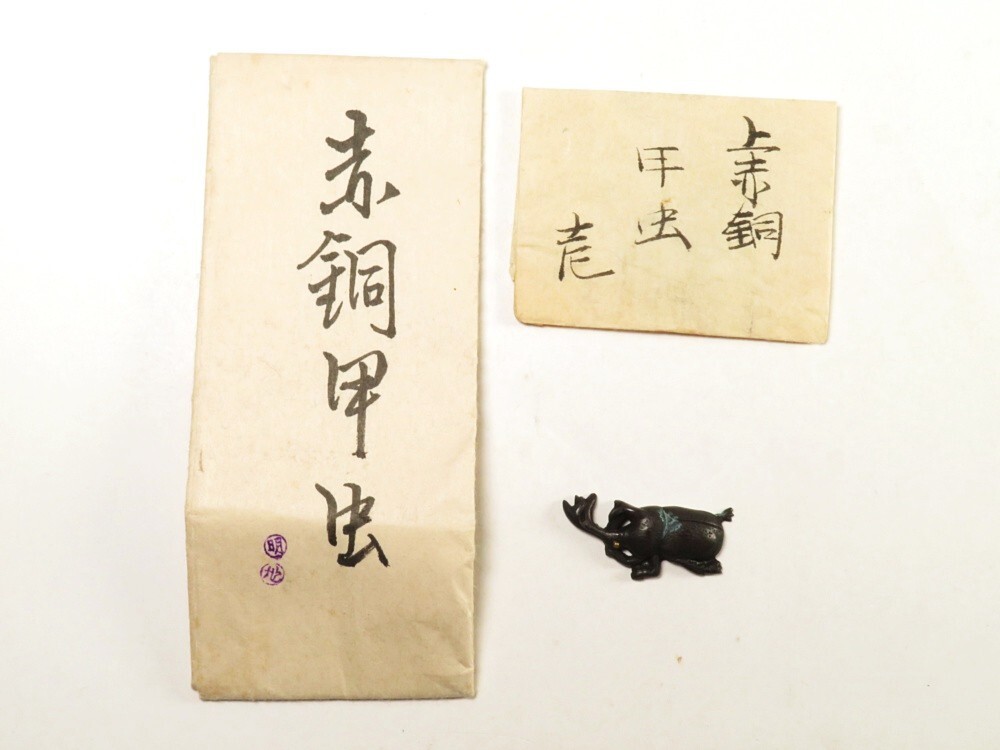 赤銅甲虫
明
上赤銅
甲虫